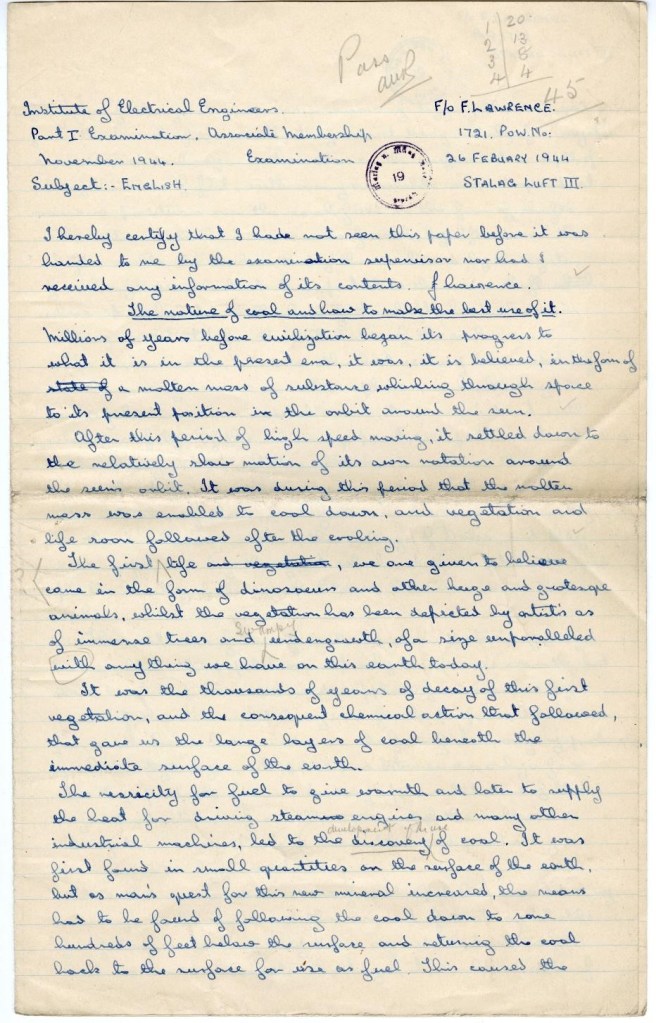 Pass
awb
1 20
2 13
3 8
4 4
45
Institute of Electrical Engineers.
Part I Examination. Associate Membership
November 1944. Examination
Subject:- ENGLISH.
F/O F. LAWRENCE.
1721. POW. No.
26 FEBUARY 1944
STALAG LUFT III.
19
I hereby certify that I have not seen this paper before it was
handed to me by the examination supervisor nor had I
received any information of its contents. F Lawrence.
The nature of coal and how to make the best use of it.
Millions of years before civilization began its progress to
what it is in the present era, it was, it is believed, in the form of
state of a molten mass of substance whirling through space
to its present position in the orbit around the sun.
After this period of high speed moving, it settled down to
the relatively slow motion of its own rotation around
the sun's orbit. It was during this period that the molten
mass was enabled to cool down, and vegetation and
life soon followed after the cooling.
The first life and vegetation, we are given to believe
came in the form of dinosaurs and other huge and grotesque
animals, whilst the vegetation has been depicted by artists as
swampy
of immense trees and undergrowth, of a size unparalleled
with anything we have on this earth today.
It was the thousands of years of decay of this first
vegetation, and the consequent chemical action that followed,
that gave us the large layers of coal beneath the
immediate surface of the earth.
The necessity for fuel to give warmth and later to supply
the heat for driving steam engines and many other
development of the use
industrial machines, led to the discovery of coal. It was
first found in small quantities on the surface of the earth,
but as man's quest for this new mineral increased, the means
had to be found of following the coal down to some
hundreds of feet below the surface and returning the coal
back to the surface for use as fuel. This caused the